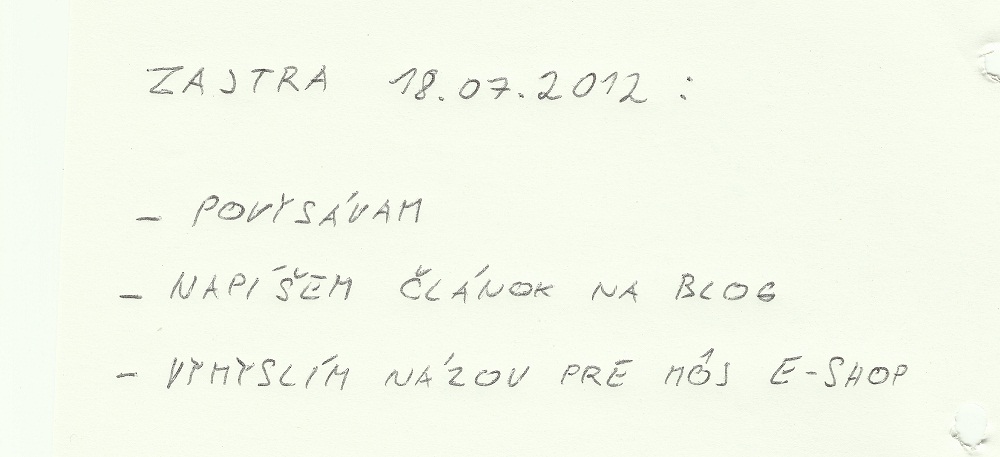 ZAJTRA 18.07.2012 :
- POVYSÁVAM
- NAPÍŠEM ČLÁNOK NA BLOG
- VYMYSLÍM NÁZOV PRE MÔJ E-SHOP